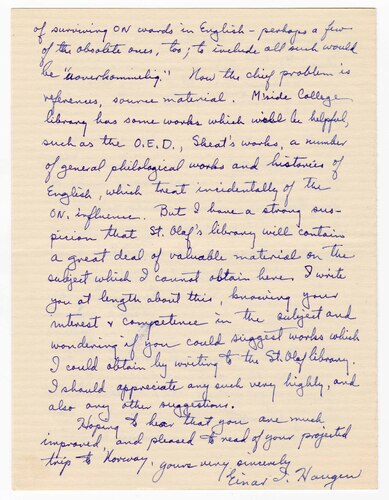 of surviving ON words in English - perhaps a few
of the obsolete ones, too; to include all such would
be "overkommelig." Now the chief problem is
references, source material. M'side College
library has some works which will be helpful,
such as the O.E.D., Skeat's works, a number
of general philological works and histories of
English, which treat incidentally of the
ON. influence. But I have a strong sus-
picion that St. Olaf's library will contain
a great deal of valuable material on the
subject which I cannot obtain here. I write
you at length about this, knowing your
interest & competence in the subject and
wondering if you could suggest works which
I could obtain by writing to the St. Olaf library.
I should appreciate any such very highly, and
also any other suggestions.
Hoping to hear that you are much
improved, and pleased to read of your projected
trip to Norway,
yours very sincerely
Einar I. Haugen